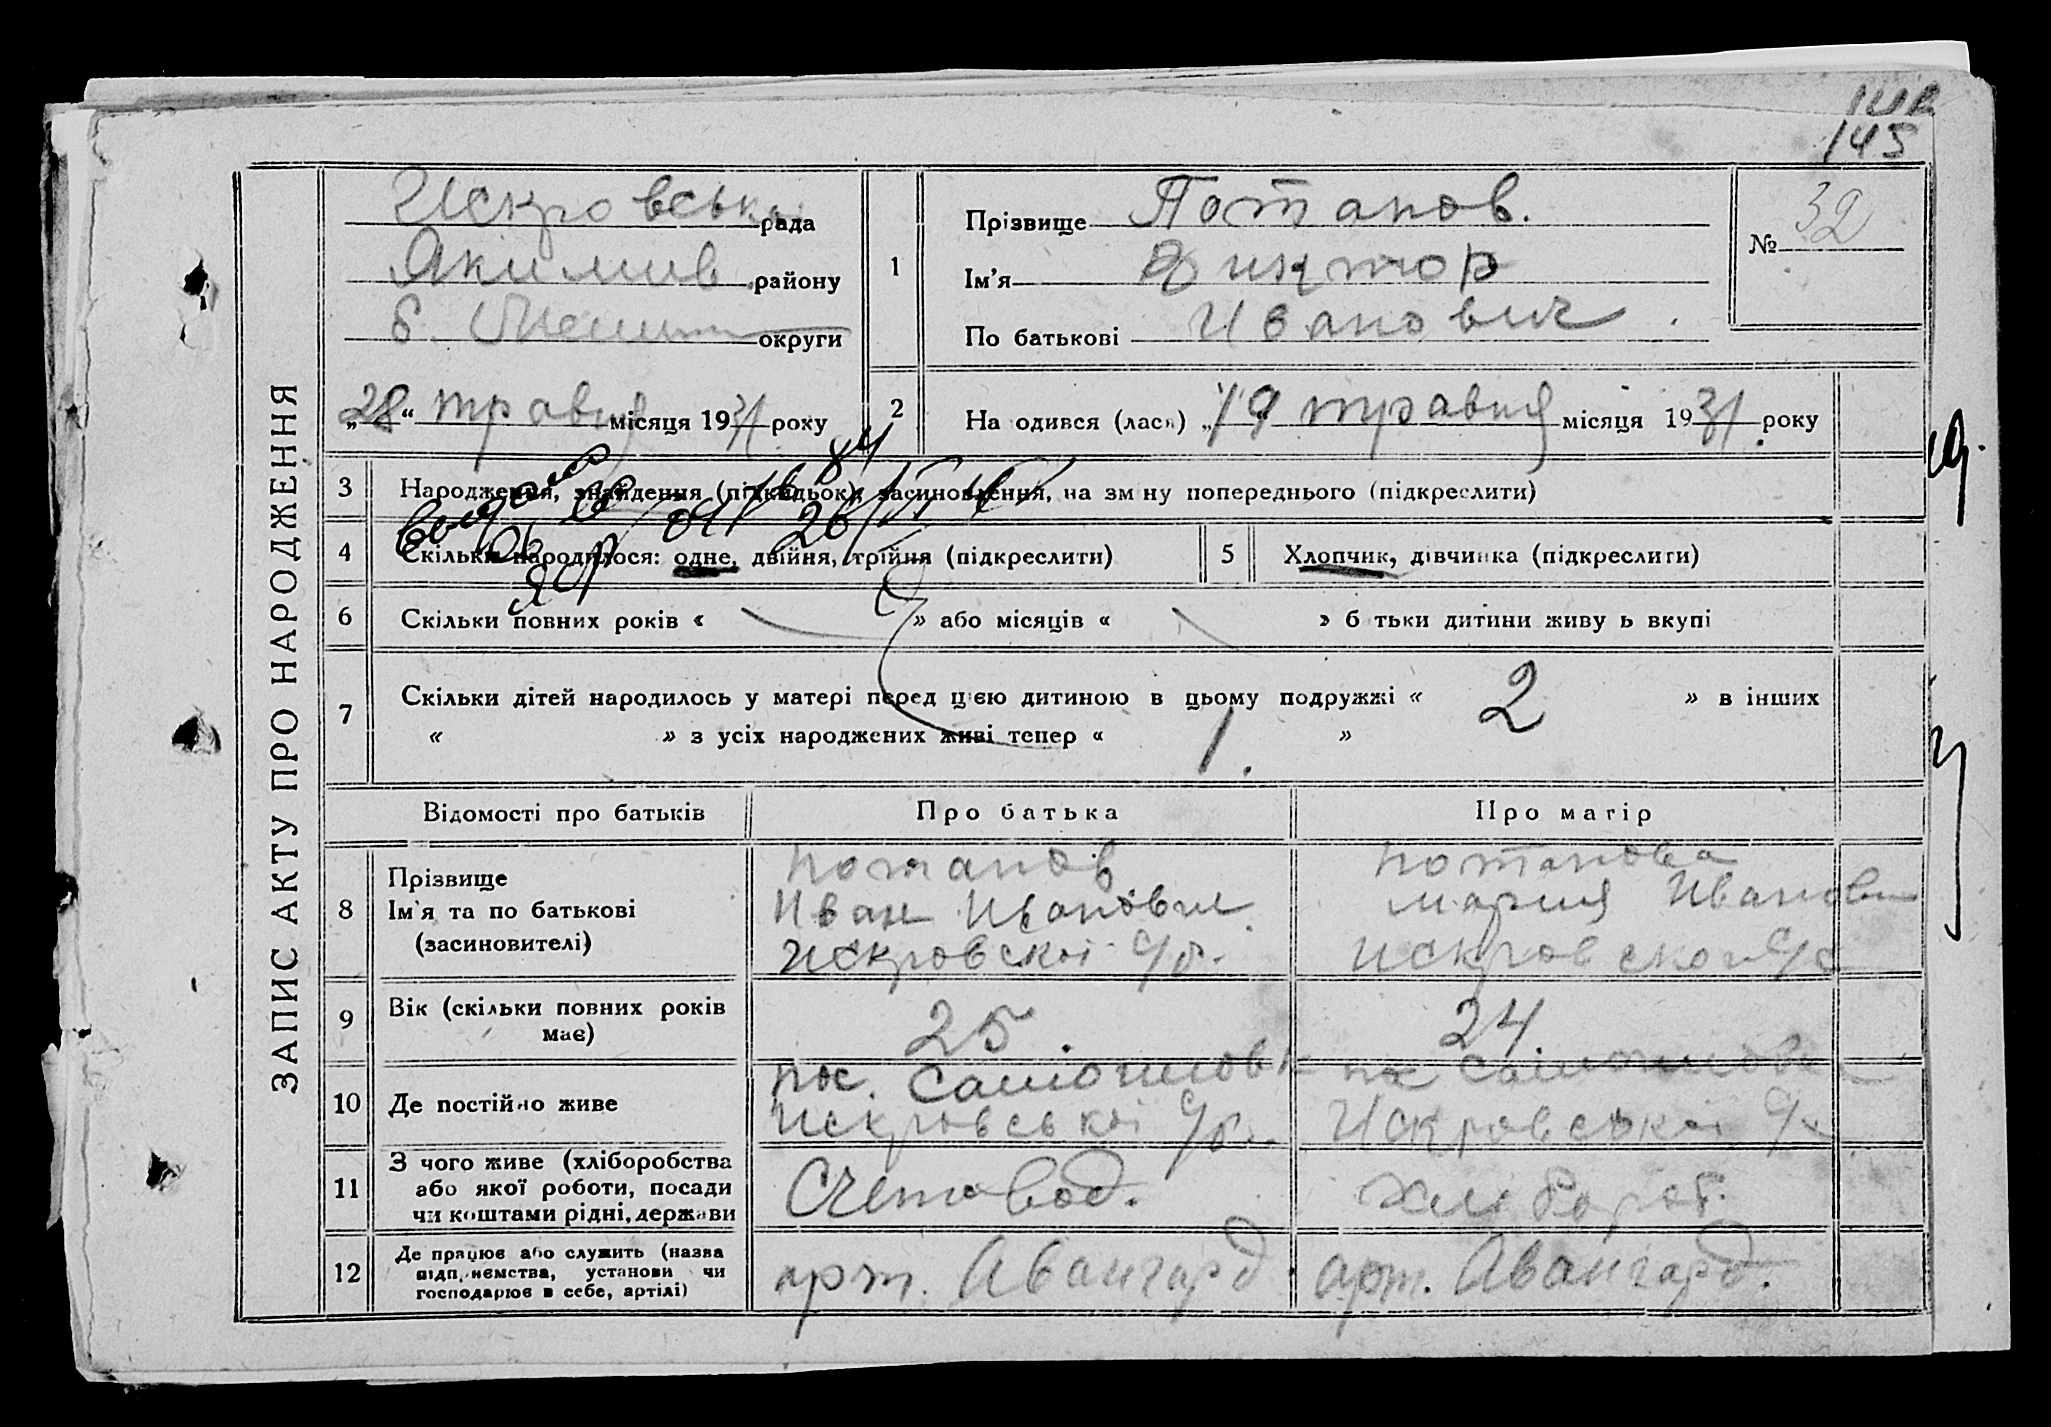 145
ЗАПИС АКТУ ПРО НАРОДЖЕННЯ
Искровська рада
Якимив району
б. округи
„28“ травня місяця 1931 року
1
Прізвище Потапов.
Ім'я Виктор
По батькові Иванович.
№ 32
2
На одився (лася) „19 травня місяця 1931 року
3
Народження, знайдення (підкидьок), засиновлення, на зм ну попереднього (підкреслити)
4
Скільки народилося: одне, двійня, трійня (підкреслити)
5
Хлопчик, дівчинка (підкреслити)
6
Скільки повних років « » або місяців « » б тьки дитини живу ь вкупі
7
Скільки дітей народилось у матері перед цією дитиною в цьому подружжі « 2 » в інших
« » з усіх народжених живі тепер « 1. »
Відомості про батьків
Про батька
Про матір
8
Прізвище
Ім'я та по батькові
(засиновителі)
Потапов
Иван Иванович
Искровскоі с/р.
Потапова
Мария Иванов
Искровскои с/р
9
Вік (скільки повних років
має)
25.
24
10
Де постійно живе
Искровськоі с/р.
Искровськоі с/р
11
З чого живе (хліборобства
або якої роботи, посади
чи коштами рідні, держави
Счетовод.
хлібороб.
12
Де працює або служить (назва
підп, иємства, установи чи
господарює в себе, артілі)
арт. Авангард.
арт. Авангард.